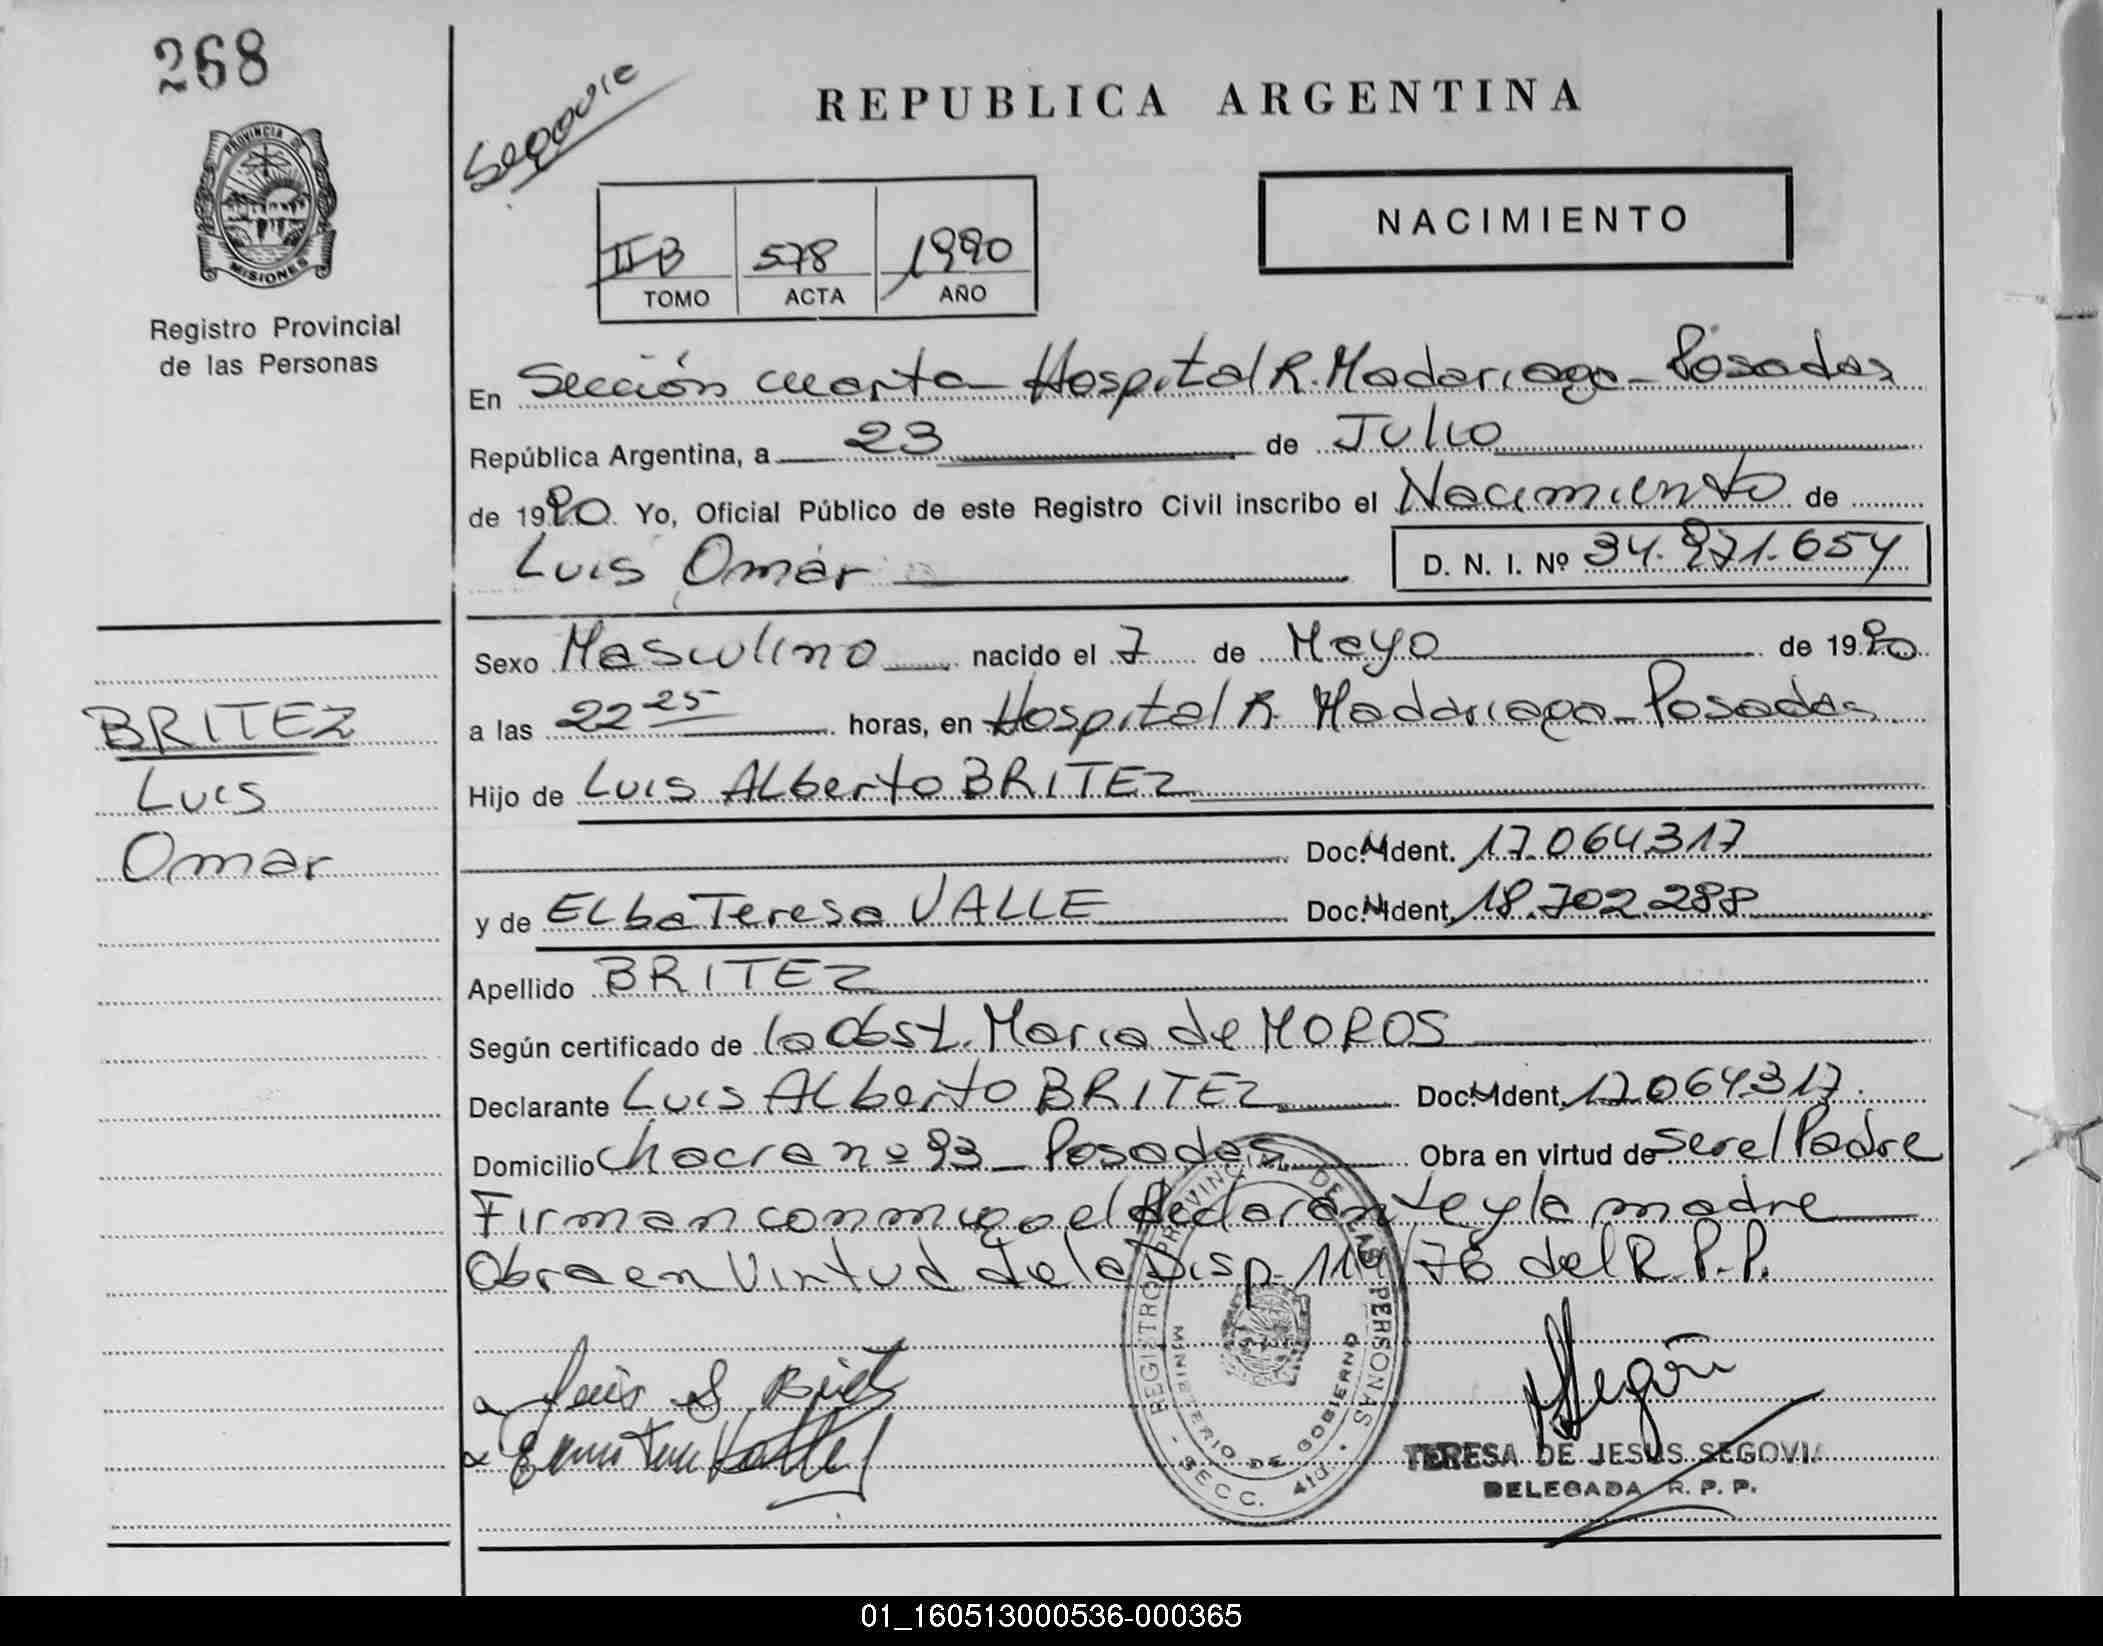 268
PROVINCIA DE
MISIONES
Registro Provincial
de las Personas
Segovia
REPUBLICA ARGENTINA
II B 578 1990
TOMO ACTA AÑO
NACIMIENTO
En Sección cuarta Hospital R. Madariaga - Posadas
República Argentina, a 23 de Julio
de 1990. Yo, Oficial Público de este Registro Civil inscribo el Nacimiento de
Luis Omar D. N. I. Nº 34.971.654
Sexo Masculino nacido el 7 de Mayo de 1990
a las 22 25 horas, en Hospital R. Madariaga - Posadas
BRITEZ
Luis
Omar
Hijo de Luis Alberto BRITEZ
Doc. Ident. 17.064.317
y de Elba Teresa VALLE Doc. Ident. 18.702.288
Apellido BRITEZ
Según certificado de la Obst. Maria de MOROS
Declarante Luis Alberto BRITEZ Doc. Ident. 17.064.317.
Domicilio Chacra nº 93 - Posadas Obra en virtud de ser el Padre
Firman conmigo el declarante y la madre
Obra en Virtud de la Disp. /76 del R.P.P.
REGISTRO PROVINCIAL DE LAS PERSONAS
MINISTERIO DE GOBIERNO
- SECC. 4ta. -
TERESA DE JESUS SEGOVIA
DELEGADA R. P. P.
01_160513000536-000365